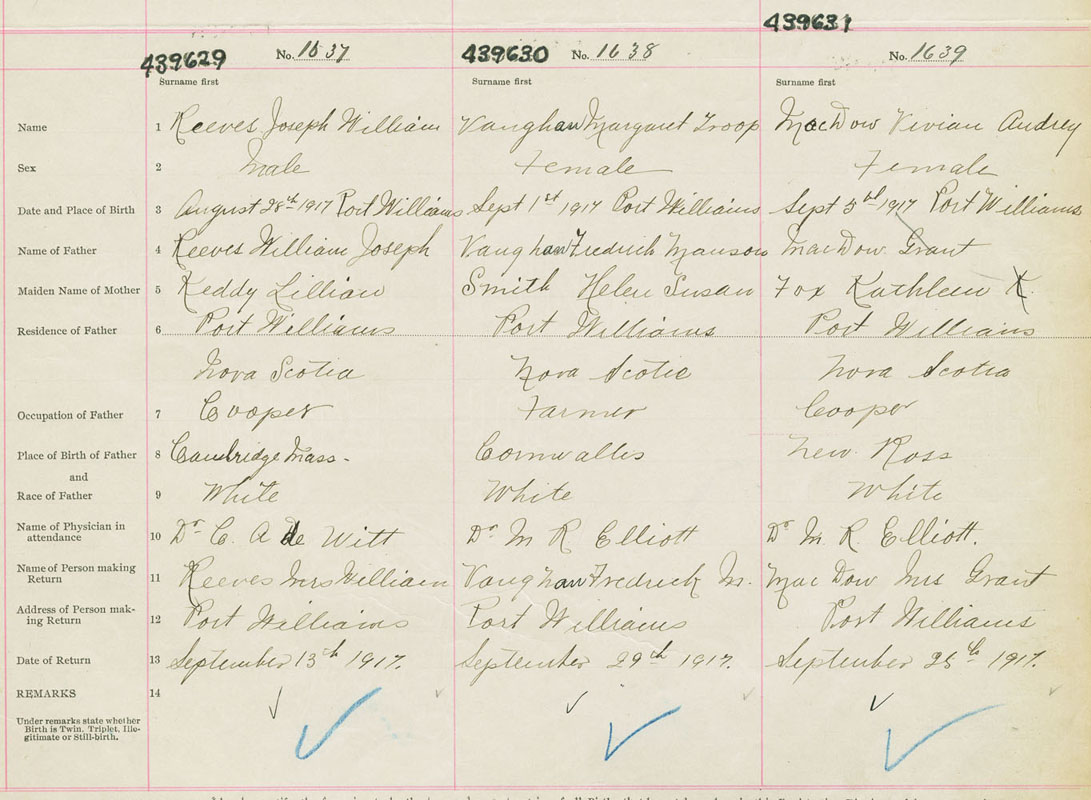 439631
439629 No. 1637 439630 No. 1638 No. 1639
Surname first Surname first Surname first
Name 1 Reeves Joseph William Vaughan Margaret Troop MacDow Vivian Audrey
Sex 2 Male Female Female
Date and Place of Birth 3 August 28th 1917 Port Williams Sept 1st 1917 Port Williams Sept 5th 1917 Port Williams
Name of Father 4 Reeves William Joseph Vaughan Fredrick Manson MacDow Grant
Maiden Name of Mother 5 Keddy Lillian Smith Helen Susan Fox Kathleen K
Residence of Father 6 Port Williams Port Williams Port Williams
Nova Scotia Nova Scotia Nova Scotia
Occupation of Father 7 Cooper Farmer Cooper
Place of Birth of Father 8 Cambridge Mass. Cornwallis New Ross
and
Race of Father 9 White White White
Name of Physician in
attendance 10 Dr C. A De Witt Dr M R Elliott Dr M. R. Elliott.
Name of Person making
Return 11 Reeves Mrs William Vaughan Fredrick M. Mac Dow Mrs Grant
Address of Person mak-
ing Return 12 Port Williams Port Williams Port Williams
Date of Return 13 September 13th 1917. September 29th 1917. September 25th 1917.
REMARKS 14
Under remarks state whether
Birth is Twin. Triplet, Ille-
gitimate or Still-birth.